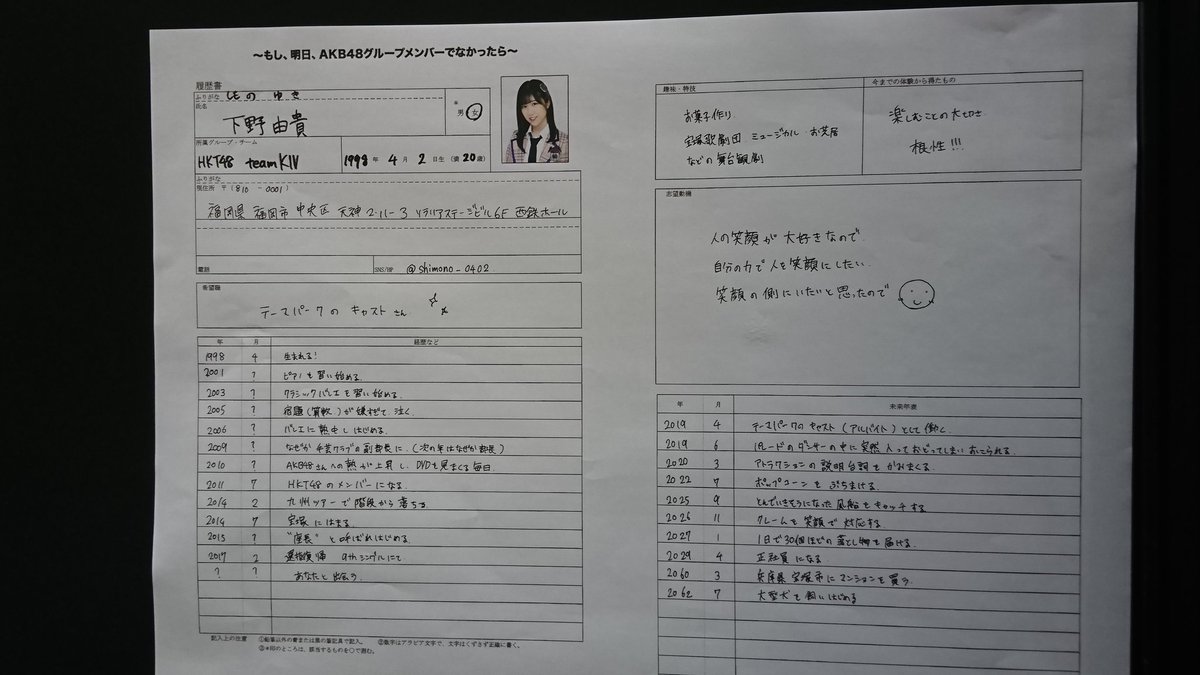 ～もし、明日、AKB48グループメンバーでなかったら～
履歴書
ふりがな しもの ゆき
氏名
下野由貴
※
男 女
所属グループ・チーム
HKT48 teamKIV
1998 年 4 月 2 日生 (満 20 歳)
ふりがな
現住所 〒(810 - 0001)
福岡県 福岡市 中央区 天神2-11-3 ソラリアステージビル6F 西鉄ホール
電話
SNS/HP @shimono_0402
希望職
テーマパークの キャストさん
年 月 経歴など
1998 4 生まれる!
2001 ? ピアノを習い始める。
2003 ? クラシックバレエを習い始める。
2005 ? 宿題(算数)が嫌すぎて 泣く。
2006 ? バレエに熱中しはじめる。
2009 ? なぜか 手芸クラブの副部長に。(次の年はなぜか部長)
2010 ? AKB48さんへの熱が上昇し、DVDを見まくる毎日。
2011 7 HKT48のメンバーになる。
2014 2 九州ツアーで階段から落ちる。
2014 7 宝塚にはまる。
2015 ? "座長"と呼ばれはじめる。
2017 2 選抜復帰 9thシングルにて
? ? あなたと出会う。
記入上の注意 ①鉛筆以外の青または黒の筆記具で記入。 ②数字はアラビア文字で、文字はくずさず正確に書く。
③※印のところは、該当するものを○で囲む。
趣味・特技
お菓子作り
宝塚歌劇団 ミュージカル・お芝居
などの舞台観劇
今までの体験から得たもの
楽しむことの大切さ
根性!!!
志望動機
人の笑顔が大好きなので。
自分の力で人を笑顔にしたい。
笑顔の側にいたいと思ったので
年 月 未来年表
2019 4 テーマパークのキャスト(アルバイト)として働く。
2019 6 パレードのダンサーの中に突然入っておどってしまいおこられる。
2020 3 アトラクションの説明台詞をかみまくる。
2022 7 ポップコーンをぶちまける。
2025 9 とんでいきそうになった風船をキャッチする
2026 11 クレームを笑顔で対応する
2027 1 1日で30個ほどの落とし物を届ける。
2029 4 正社員になる。
2060 3 兵庫県宝塚市にマンションを買う。
2062 7 大型犬を飼いはじめる